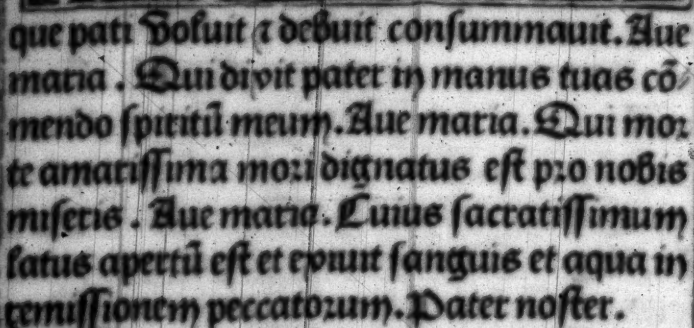 que pati voluit ⁊ debuit consummauit. Aue
maria. Qui dixit pater in manus tuas cō
mendo spiritū meum. Aue maria. Qui mor
te amarissima mori dignatus est pro nobis
miseris. Aue maria. Cuius sacratissimum
latus apertū est et exiuit sanguis et aqua in
remissionem peccatorum. Pater noster.